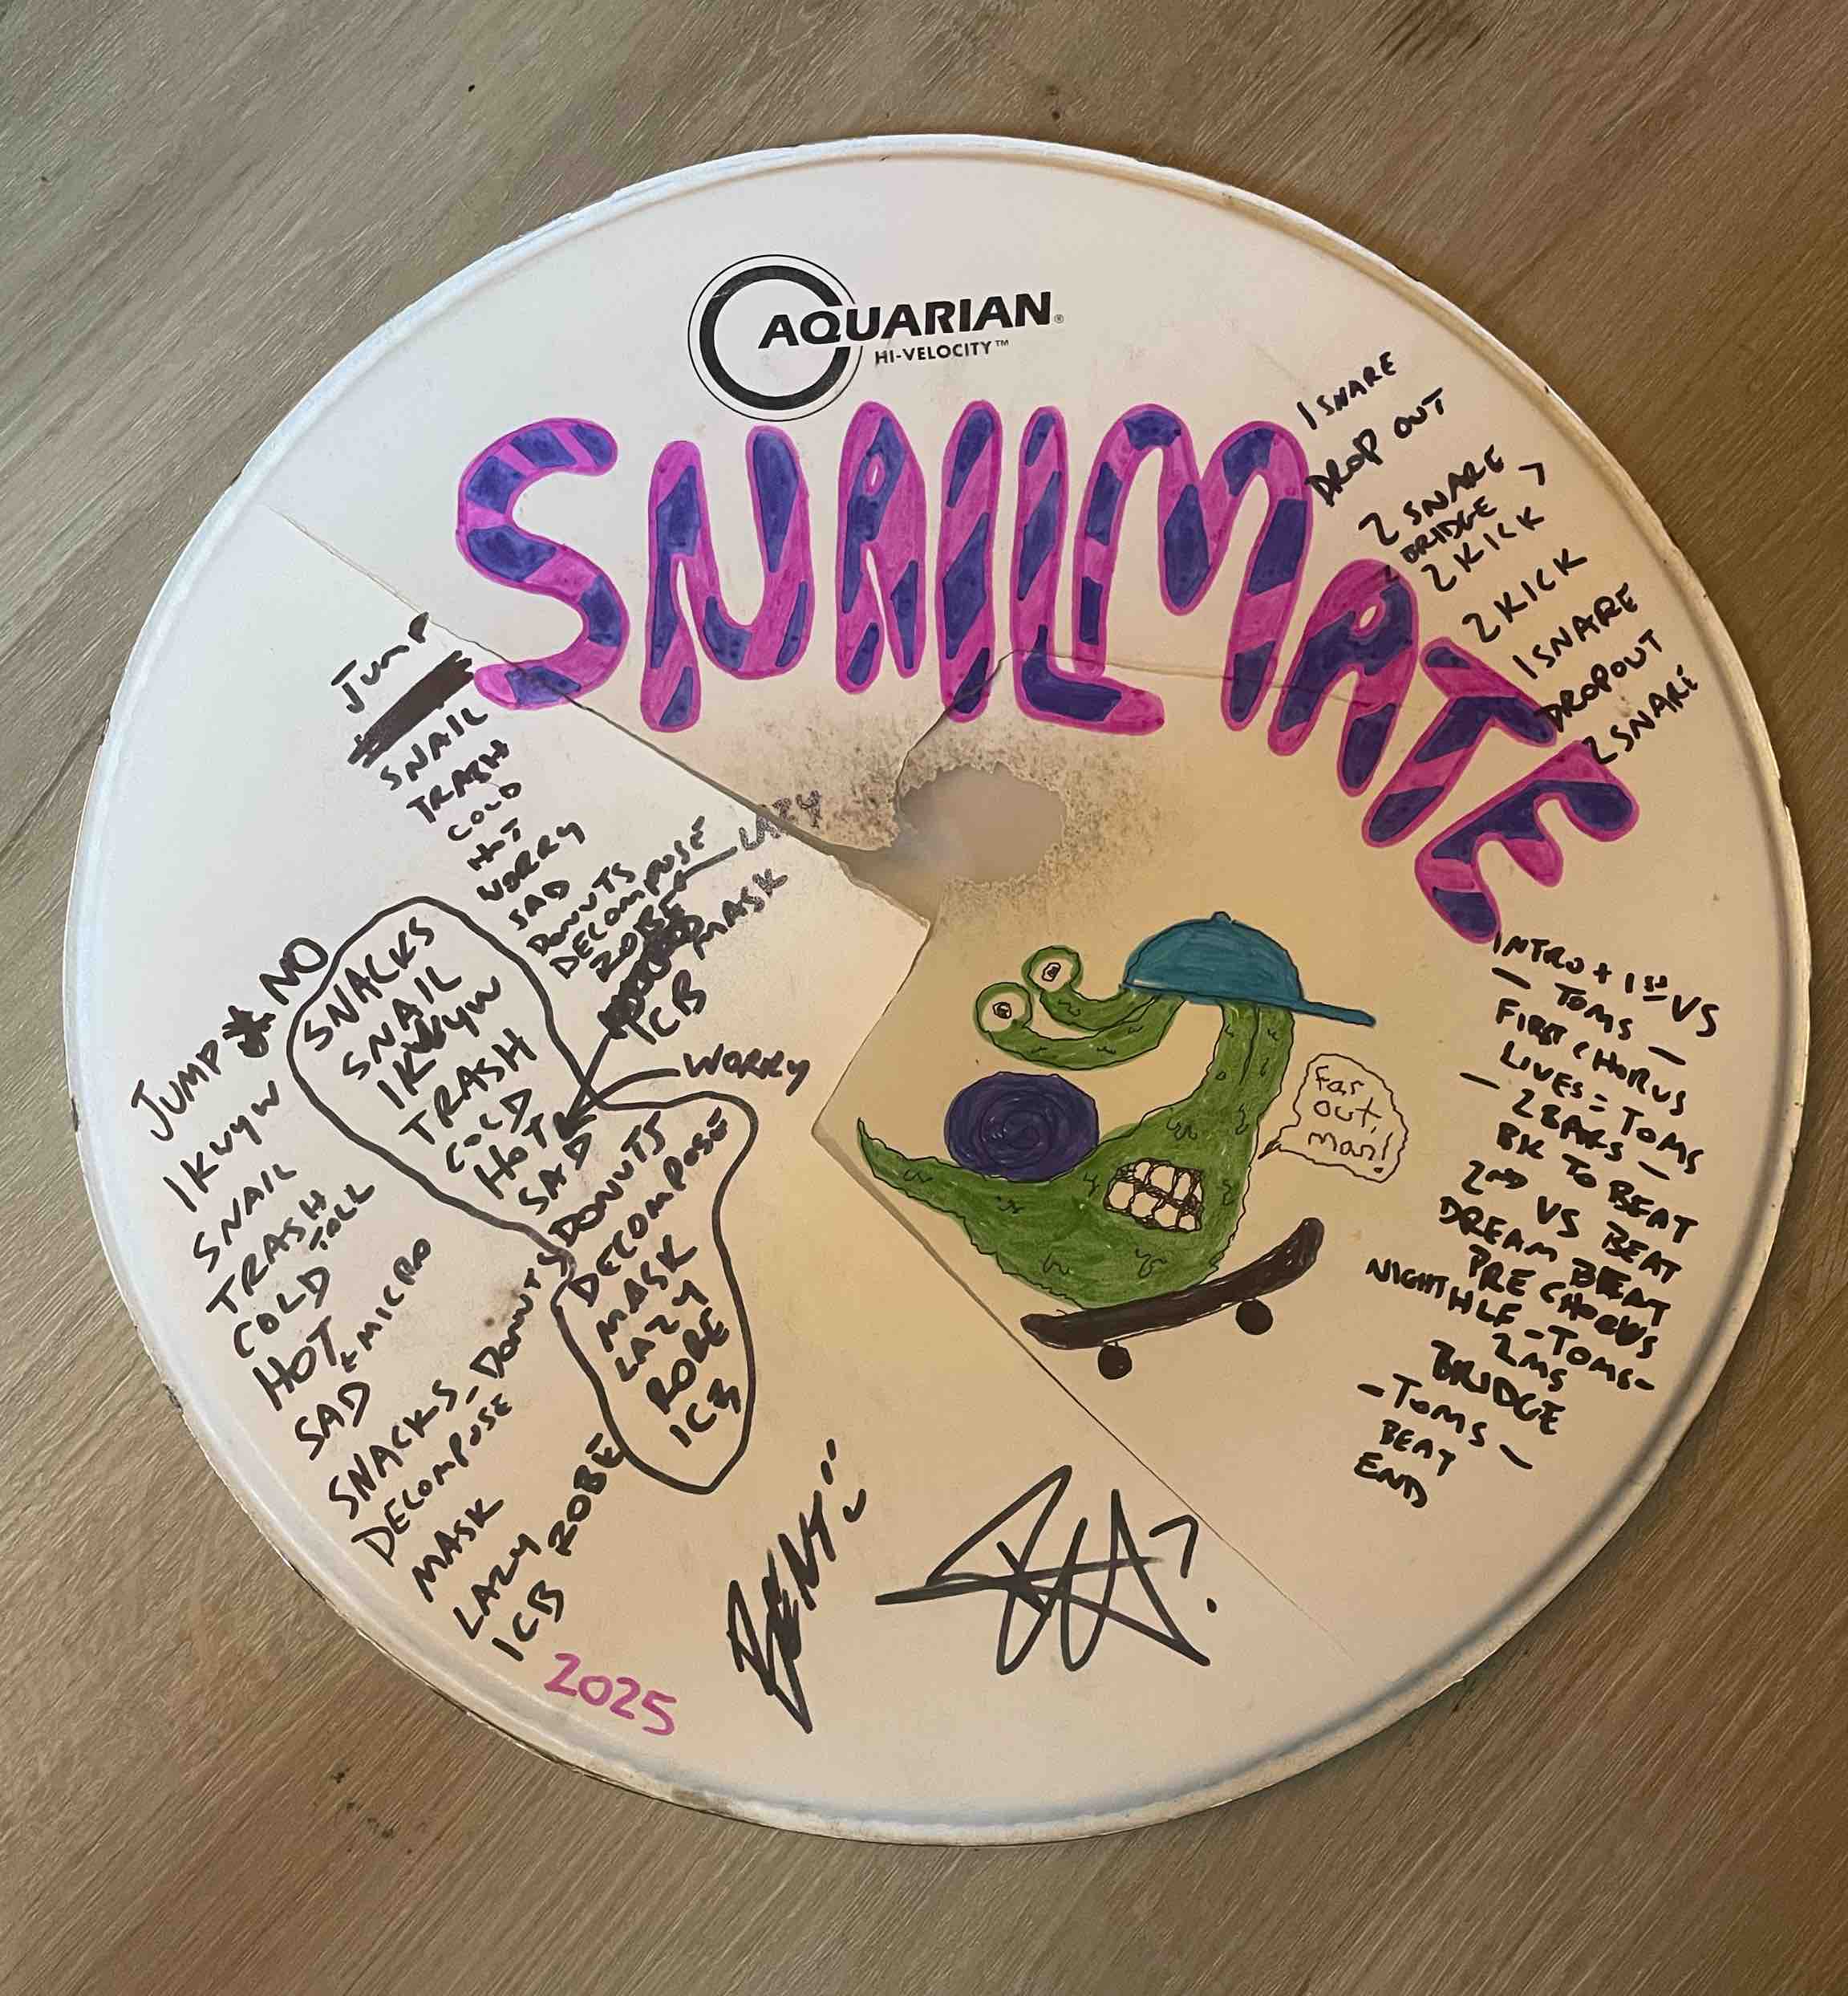 AQUARIAN®
HI-VELOCITY™
SNAILMATE
1 SNARE
DROP OUT
2 SNARE
BRIDGE >
2 KICK
2 KICK
1 SNARE
DROPOUT
2 SNARE
JUMP
SNAIL
TRASH
COLD
HOT
WORRY
SAD
DONUTS
DECOMPOSE
ROBE LAZY
MASK
ICB
WORRY
SNACKS
SNAIL
IKWYW
TRASH
COLD
HOT
SAD
DONUTS
DECOMPOSE
MASK
LAZY
ROBE
ICB
JUMP * NO
IKWYW
SNAIL
TRASH
COLD
HOT + MICRO
SAD
SNACKS - DONUTS
DECOMPOSE
MASK
LAZY ROBE
ICB
2025
Far
out,
man!
INTRO + 1ST VS
- TOMS -
FIRST CHORUS
LIVES = TOMS
- 2 BARS -
BK TO BEAT
2ND VS BEAT
DREAM BEAT
PRE CHORUS
NIGHT HLF - TOMS -
2 MS
BRIDGE
- TOMS -
BEAT
END